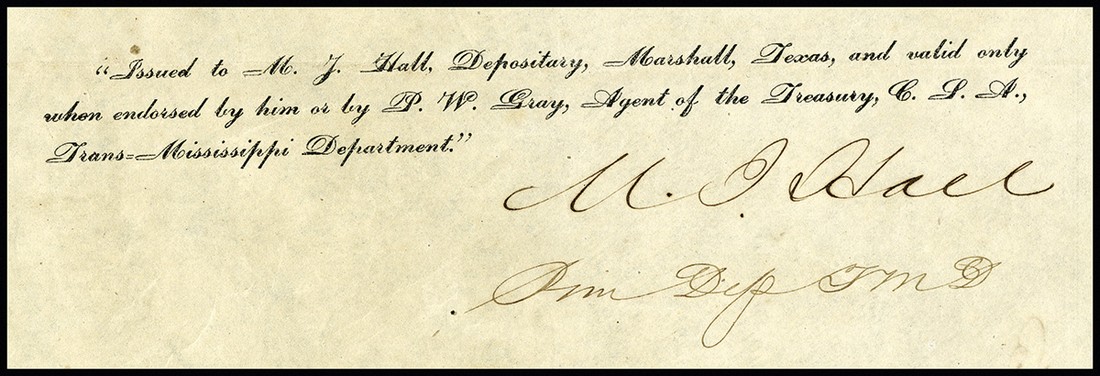 “Issued to M. J. Hall, Depositary, Marshall, Texas, and valid only
when endorsed by him or by P. W. Gray, Agent of the Treasury, C. S. A.,
Trans-Mississippi Department.”
M. J Hall
Prin Dep T M D